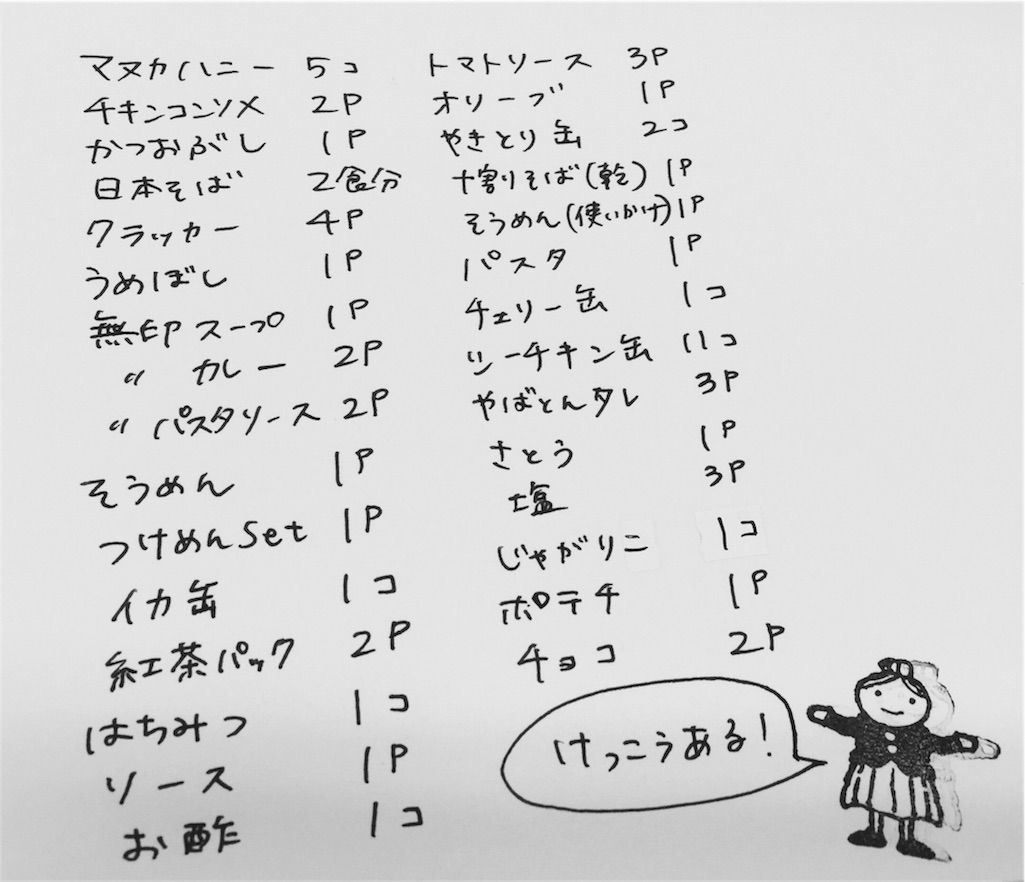 マヌカハニー 5コ
チキンコンソメ 2P
かつおぶし 1P
日本そば 2食分
クラッカー 4P
うめぼし 1P
無印スープ 1P
〃 カレー 2P
〃 パスタソース 2P
そうめん 1P
つけめんSet 1P
イカ缶 1コ
紅茶パック 2P
はちみつ 1コ
ソース 1P
お酢 1コ
トマトソース 3P
オリーブ 1P
やきとり缶 2コ
十割りそば(乾) 1P
そうめん(使いかけ) 1P
パスタ 1P
チェリー缶 1コ
ツーチキン缶 11コ
やばとんタレ 3P
さとう 1P
塩 3P
じゃがりこ 1コ
ポテチ 1P
チョコ 2P
けっこうある!